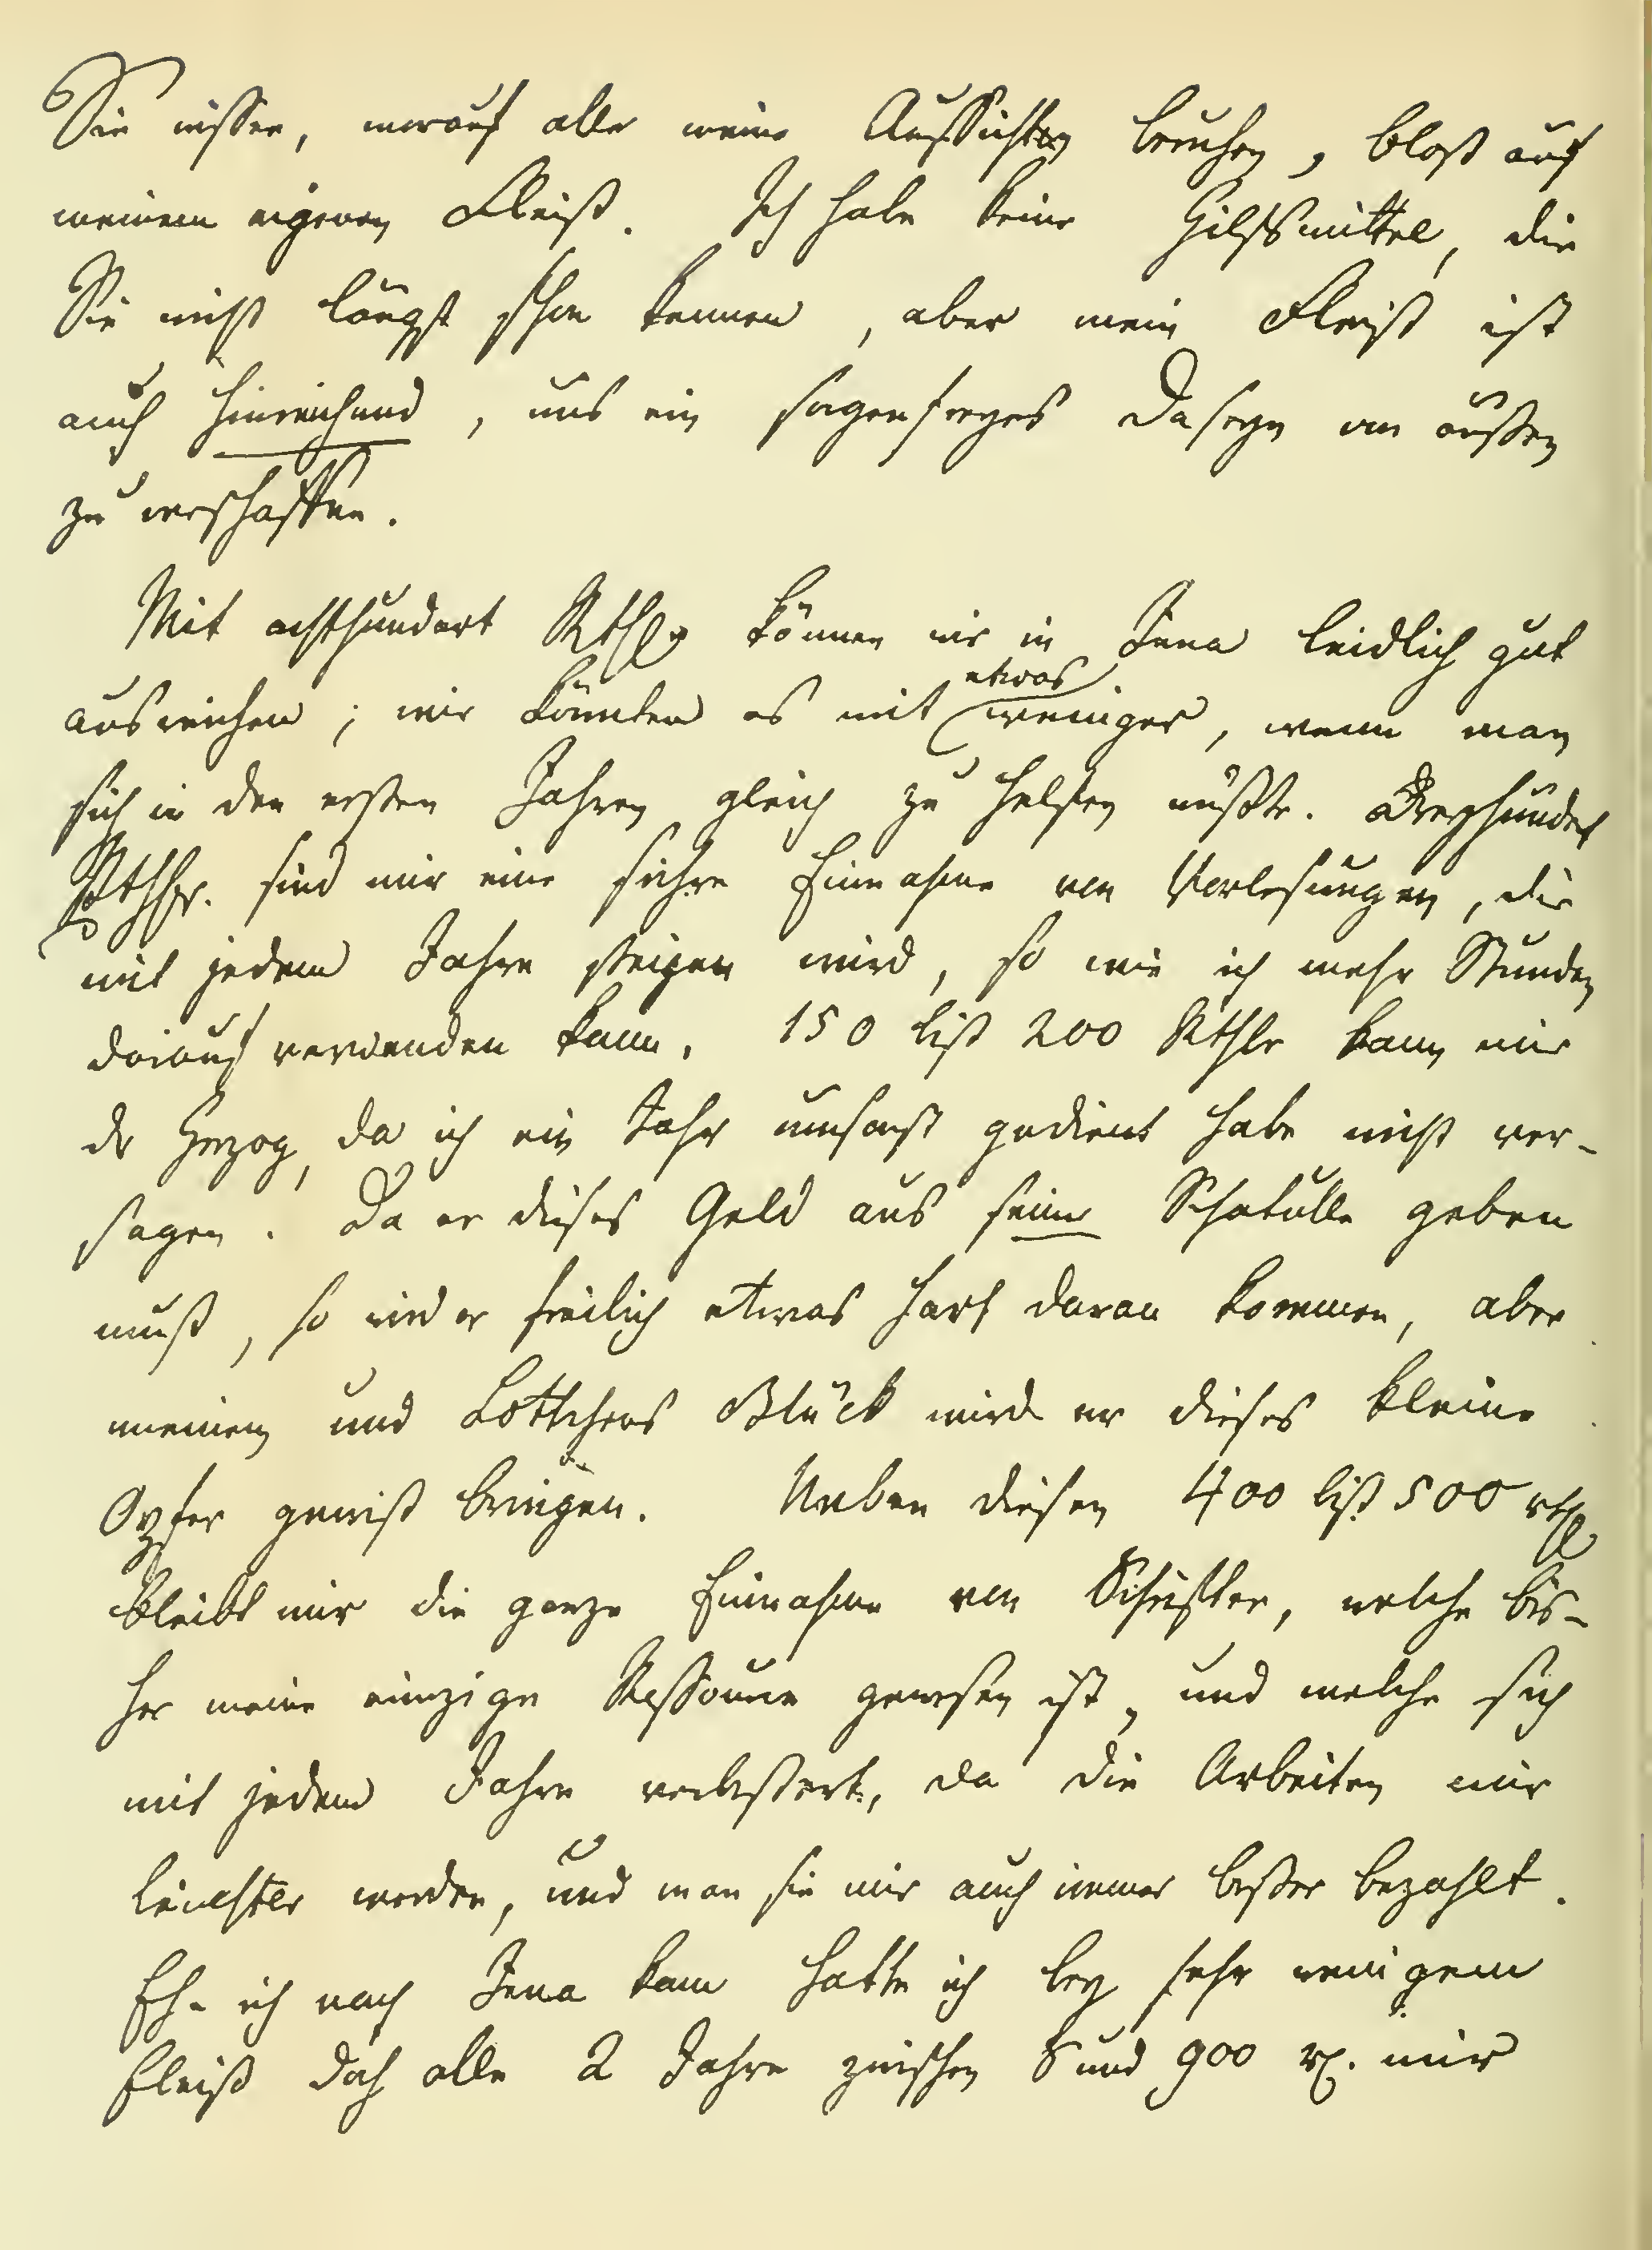 Sie wissen, worauf alle meine Aussichten beruhen, bloß auf
meinem eigenen Fleiß. Ich habe keine Hilfsmittel, die
Sie nicht längst schon kennen, aber mein Fleiß ist
auch hinreichend, uns ein sorgenfreyes Daseyn von außen
zu verschaffen.
Mit achthundert Rthlr können wir in Jena leidlich gut
ausreichen; wir könnten es mit etwas weniger, wenn man
sich in den ersten Jahren gleich zu helfen wüßte. Dreyhundert
Rthlr. sind mir eine sichre Einnahme von Vorlesungen, die
mit jedem Jahre steigen wird, so wie ich mehr Stunden
darauf verwenden kann. 150 biß 200 Rthlr kann mir
der Herzog, da ich ein Jahr umsonst gedient habe nicht ver-
sagen. Da er dieses Geld aus seine Schatulle geben
muß, so wird er freilich etwas hart daran kommen, aber
meinem und Lottchens Glück wird er dieses kleine
Opfer gewiß bringen. Neben diesen 400 biß 500 rthl
bleibt mir die ganze Einnahme von Schriften, welche bis-
her meine einzige Ressource gewesen ist, und welche sich
mit jedem Jahre verbessert, da die Arbeiten mir
leichter werden, und man sie mir auch immer besser bezahlt.
Eh- ich nach Jena kam hatte ich bey sehr wenigem
Fleiß doch alle 2 Jahre zwischen 8 und 900 rth. mir